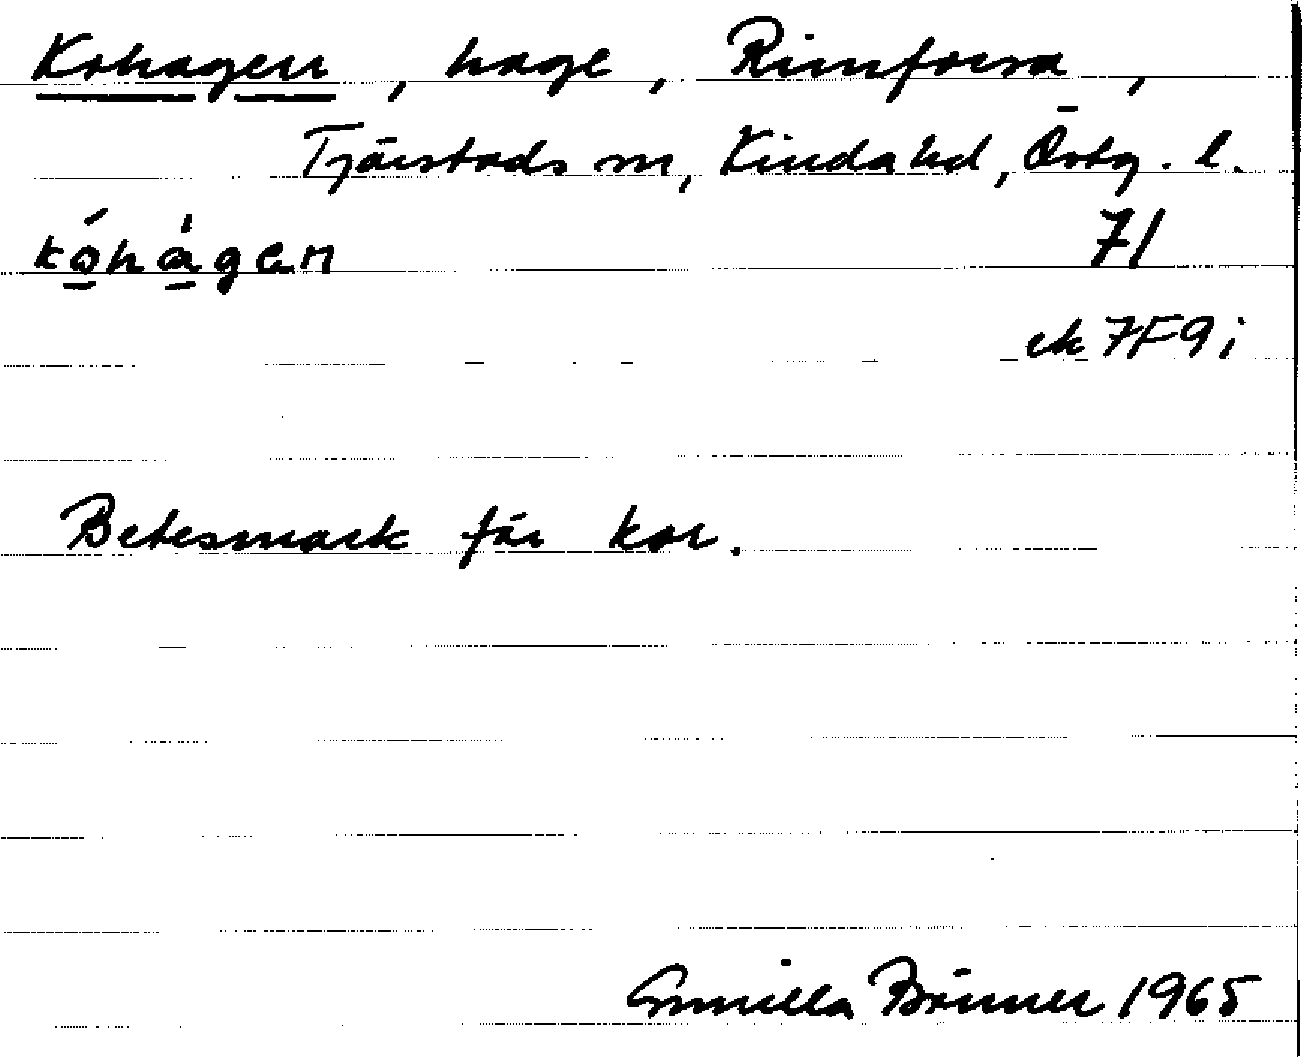 Kohagen, hage, Rimforsa,
Tjärstads sn, Kinda hd, Östg. l.
kóhàgen 71
ek 7F9i
Betesmark för kor.
Gunilla 1965